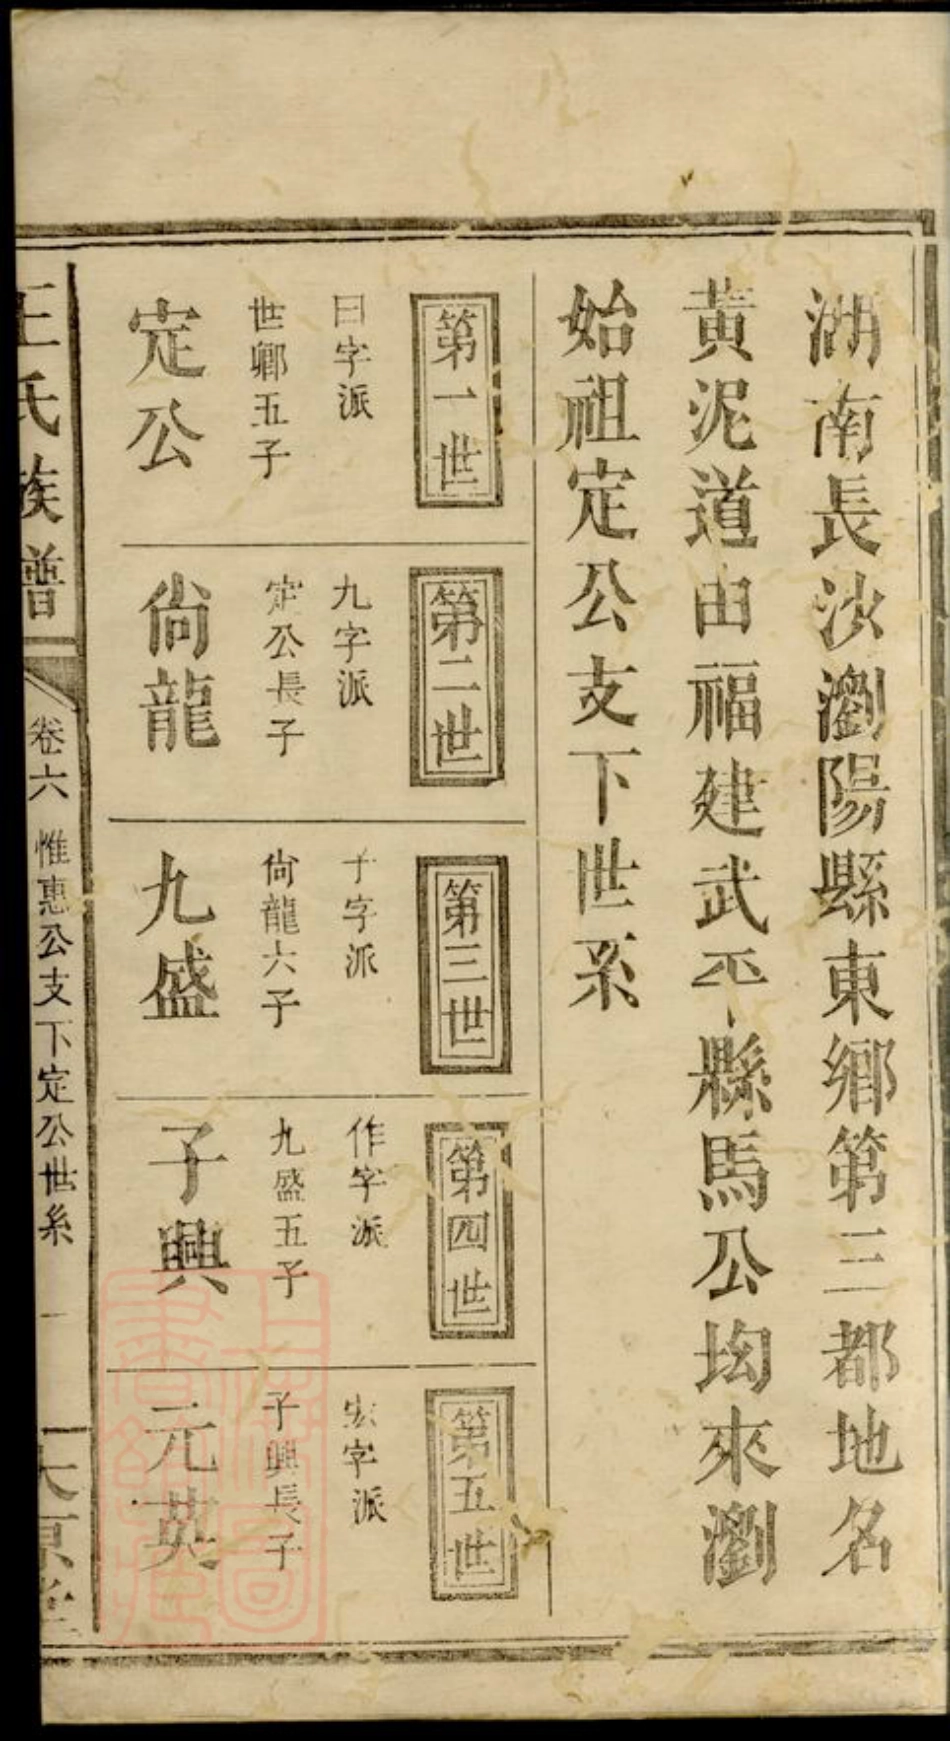 湖南長沙瀏陽縣東鄉第三都地名
黃泥道由福建武平縣馬公坳來瀏
始祖定公支下世系
第一世
曰字派
世卿五子
定公
第二世
九字派
定公長子
尙龍
第三世
子字派
尙龍六子
九盛
第四世
作字派
九盛五子
子興
第五世
字派
子興長子
元英
王氏族譜
卷六
惟惠公支下定公世系
一
太原堂